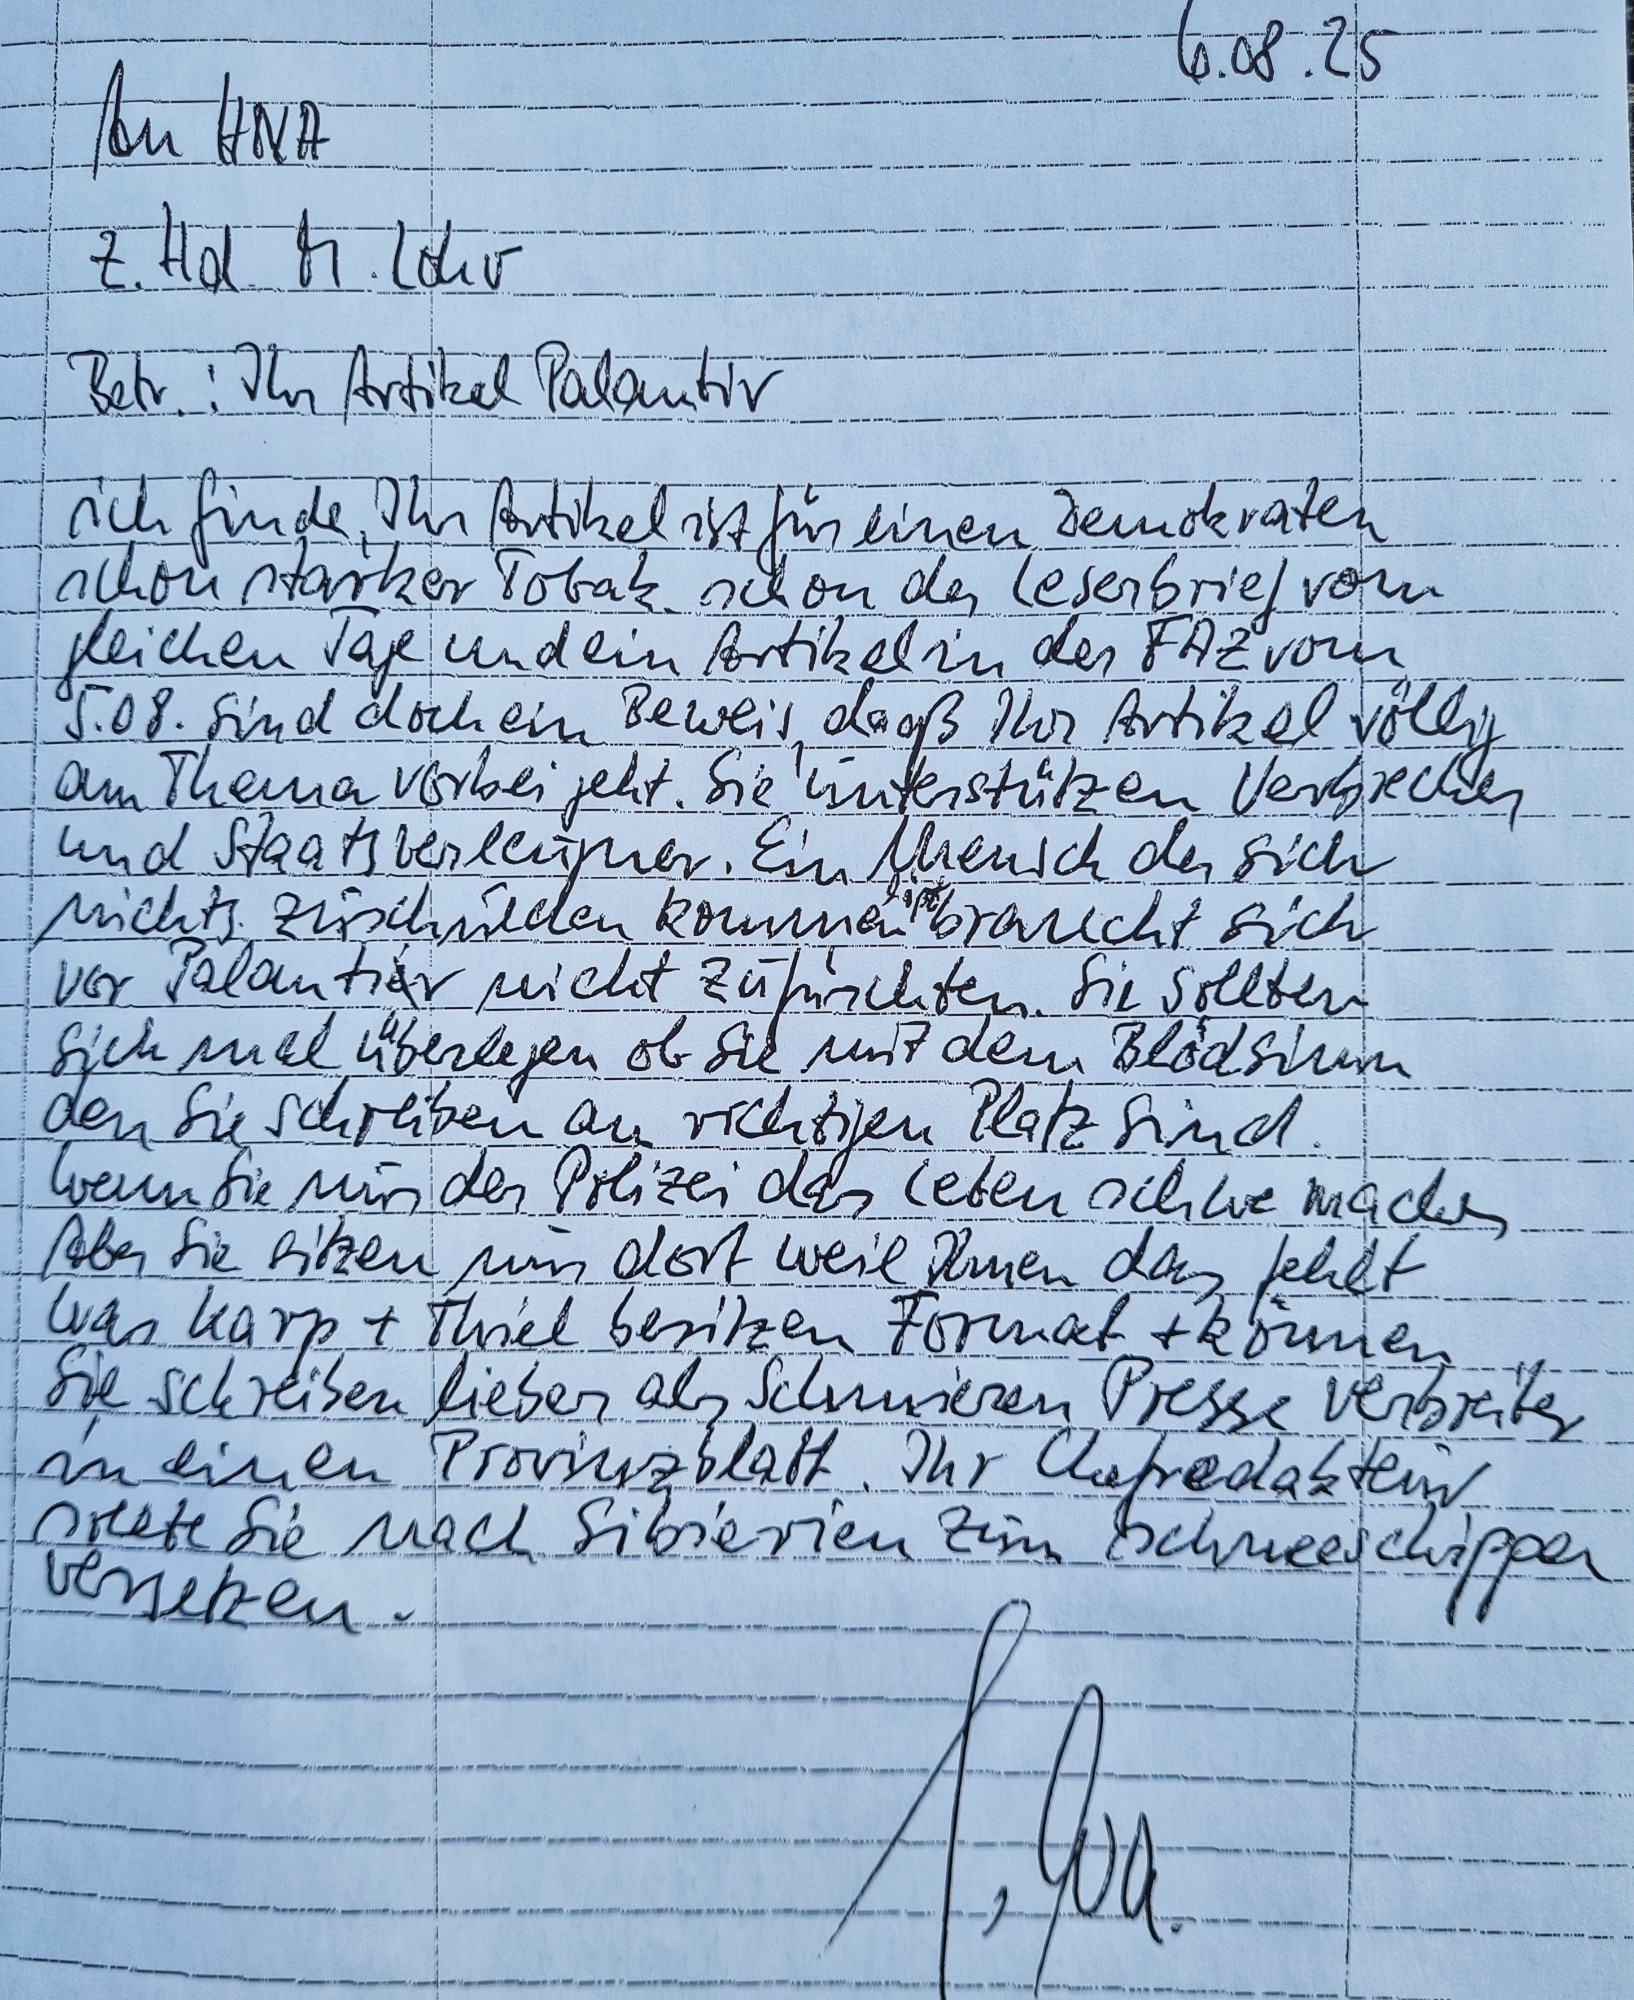 6.08.25
An HNA
z. Hd. M. Lohr
Betr.: Ihr Artikel Palantir
ich finde, Ihr Artikel ist für einen Demokraten
schon starker Tobak. schon der Leserbrief vom
gleichen Tage und ein Artikel in der FAZ vom
5.08. sind doch ein Beweis, daß Ihr Artikel völlig
am Thema vorbei geht. Sie unterstützen Verbrecher
und Staatsverleugner. Ein Mensch der sich
nichts zuschulden kommen läßt braucht sich
vor Palantir nicht zu fürchten. Sie sollten
sich mal überlegen ob Sie mit dem Blödsinn
den Sie schreiben an richtigen Platz sind.
Wenn Sie nur der Polizei das Leben schwe machen
Aber Sie sitzen nur dort weil Ihnen das fehlt
was Karp + Thiel besitzen Format + können
Sie schreiben lieber als Schmieren Presse verbreiter
in einen Provinzblatt. Ihr Chefredakteur
sollte Sie nach Sibierien zum schneeschippen
versetzen.